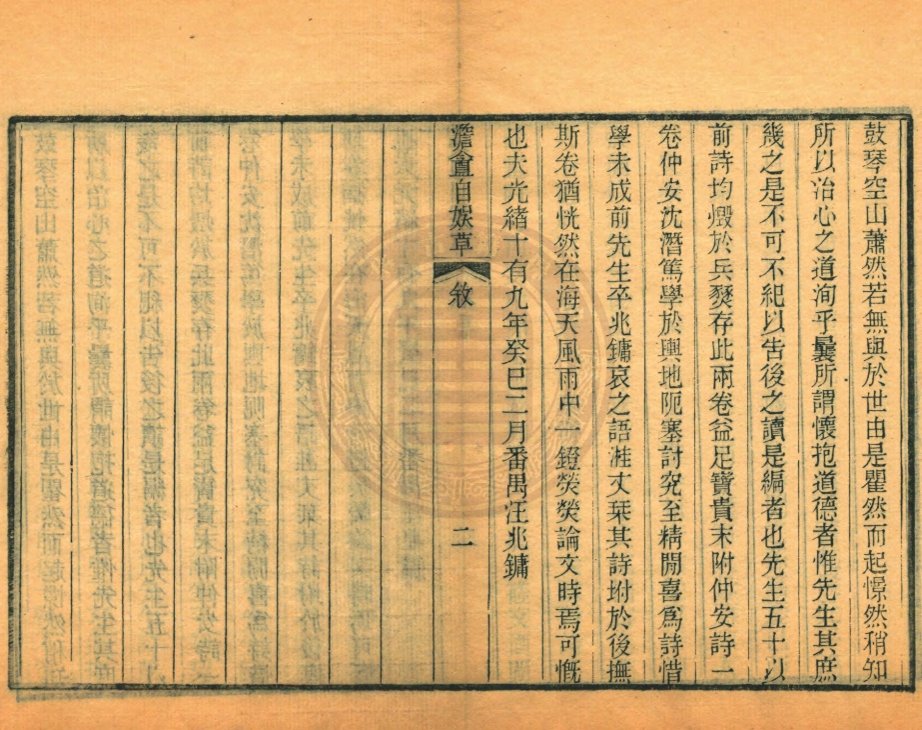 鼓琴空山蕭然若無與於世由是瞿然而起憬然稍知
所以治心之道洵乎曩所謂懷抱道德者惟先生其庶
幾之是不可不紀以告後之讀是編者也先生五十以
前詩均燬於兵燹存此兩卷益足寶貴末附仲安詩一
卷仲安沈潛篤學於輿地阨塞討究至精閒喜爲詩惜
學未成前先生卒兆鏞哀之語漄丈栞其詩坿於後撫
斯卷猶恍然在海天風雨中一鐙熒熒論文時焉可慨
也夫光緒十有九年癸巳二月番禺汪兆鏞
澹盦自娛草
敘
二